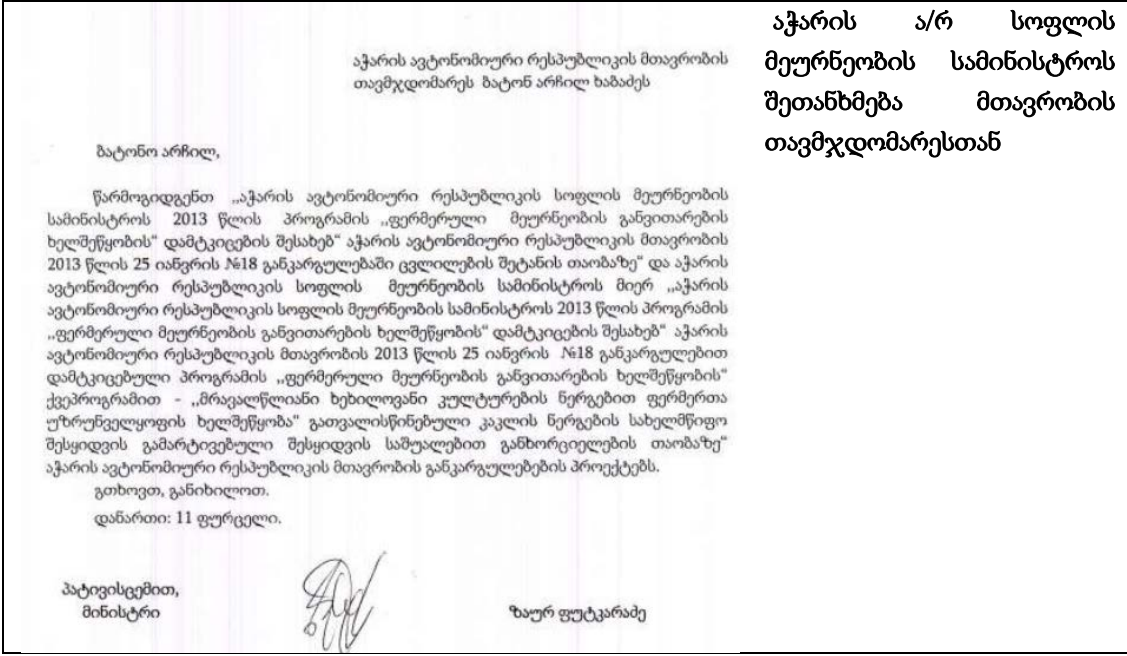 აჭარის ავტონომიური რესპუბლიკის მთავრობის
თავმჯდომარეს ბატონ არჩილ ხაბაძეს
ბატონო არჩილ,
წარმოგიდგენთ „აჭარის ავტონომიური რესპუბლიკის სოფლის მეურნეობის
სამინისტროს 2013 წლის პროგრამის „ფერმერული მეურნეობის განვითარების
ხელშეწყობის“ დამტკიცების შესახებ“ აჭარის ავტონომიური რესპუბლიკის მთავრობის
2013 წლის 25 იანვრის №18 განკარგულებაში ცვლილების შეტანის თაობაზე“ და აჭარის
ავტონომიური რესპუბლიკის სოფლის მეურნეობის სამინისტროს მიერ „აჭარის
ავტონომიური რესპუბლიკის სოფლის მეურნეობის სამინისტროს 2013 წლის პროგრამის
„ფერმერული მეურნეობის განვითარების ხელშეწყობის“ დამტკიცების შესახებ“ აჭარის
ავტონომიური რესპუბლიკის მთავრობის 2013 წლის 25 იანვრის №18 განკარგულებით
დამტკიცებული პროგრამის „ფერმერული მეურნეობის განვითარების ხელშეწყობის“
ქვეპროგრამით - „მრავალწლიანი ხეხილოვანი კულტურების ნერგებით ფერმერთა
უზრუნველყოფის ხელშეწყობა“ გათვალისწინებული კაკლის ნერგების სახელმწიფო
შესყიდვის გამარტივებული შესყიდვის საშუალებით განხორციელების თაობაზე“
აჭარის ავტონომიური რესპუბლიკის მთავრობის განკარგულებების პროექტებს.
გთხოვთ, განიხილოთ.
დანართი: 11 ფურცელი.
პატივისცემით,
მინისტრი
ზაურ ფუტკარაძე
აჭარის ა/რ სოფლის
მეურნეობის სამინისტროს
შეთანხმება მთავრობის
თავმჯდომარესთან